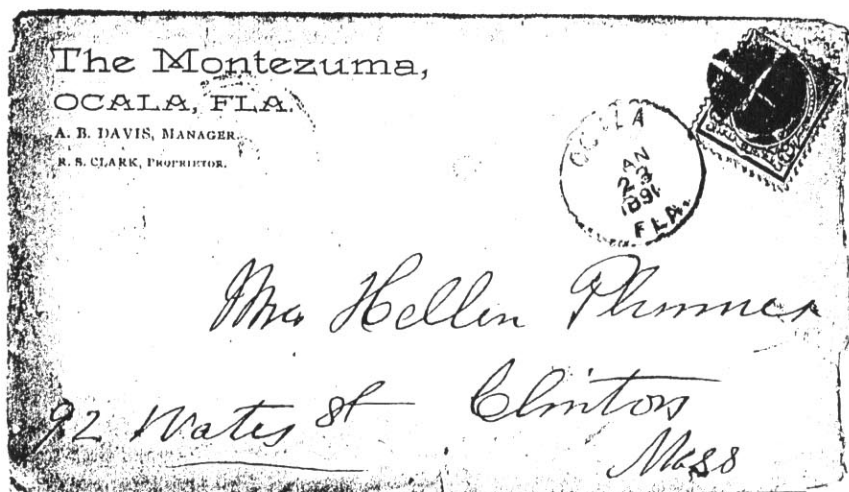 The Montezuma,
OCALA, FLA.
A. B. DAVIS, MANAGER.
R. S. CLARK, PROPRIETOR.
OCALA
JAN
23
1891
FLA.
Mrs Hellen Plummer
92 Water St Clinton
Mass